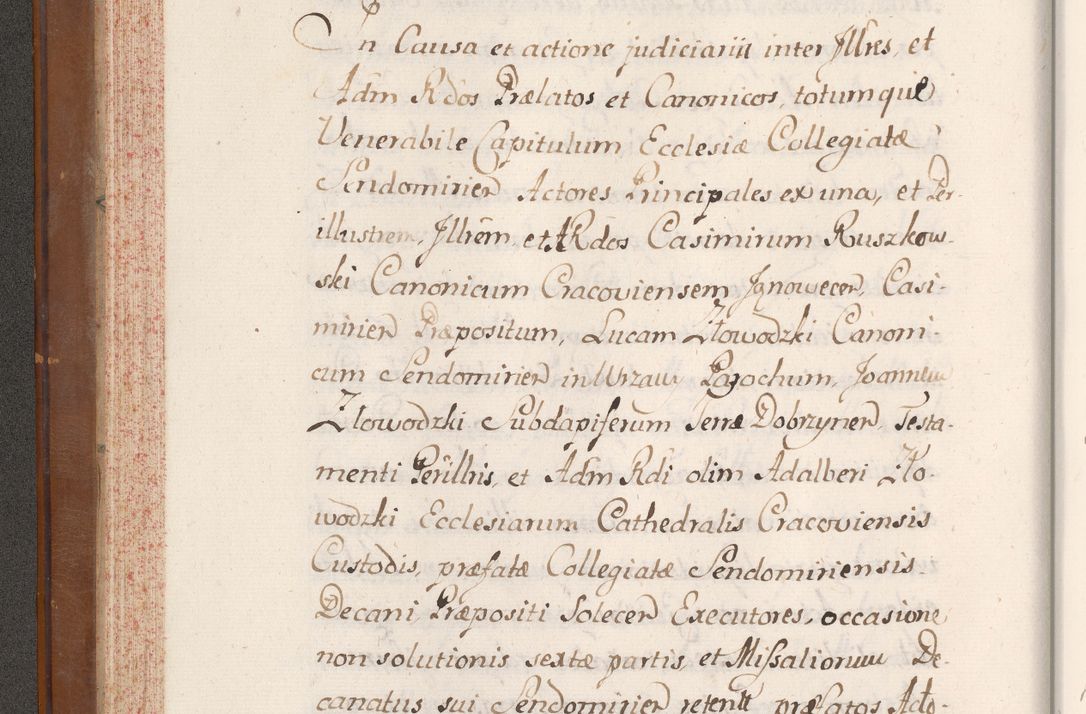 In Causa et actione judiciarii inter Jllres, et
Adm Rdos Prælatos et Canonicos, totumque
Venerabile Capitulum Ecclesiæ Collegiatæ
Sendomirien Actores Principales ex una, et Per-
illustrem, Jllrem, et ARdos Casimirum Ruszkow-
ski Canonicum Cracoviensem Janowecen, Casi-
mirien Præpositum, Lucam Złowodzki Canoni-
cum Sendomirien in Wrzawy Parochum, Joannem
Złowodzki Subdapiferum Terræ Dobrzynen, Testa-
menti Perillris, et Adm Rdi olim Adalberi Zło-
wodzki Ecclesiarum Cathedralis Cracoviensis
Custodis, præfatæ Collegiatæ Sendomiriensis
Decani, Præpositi Solecen Executores, occasione
non solutionis sextæ partis, et Missaliorum De-
canatus sui Sendomirien retent præfatos Acto-